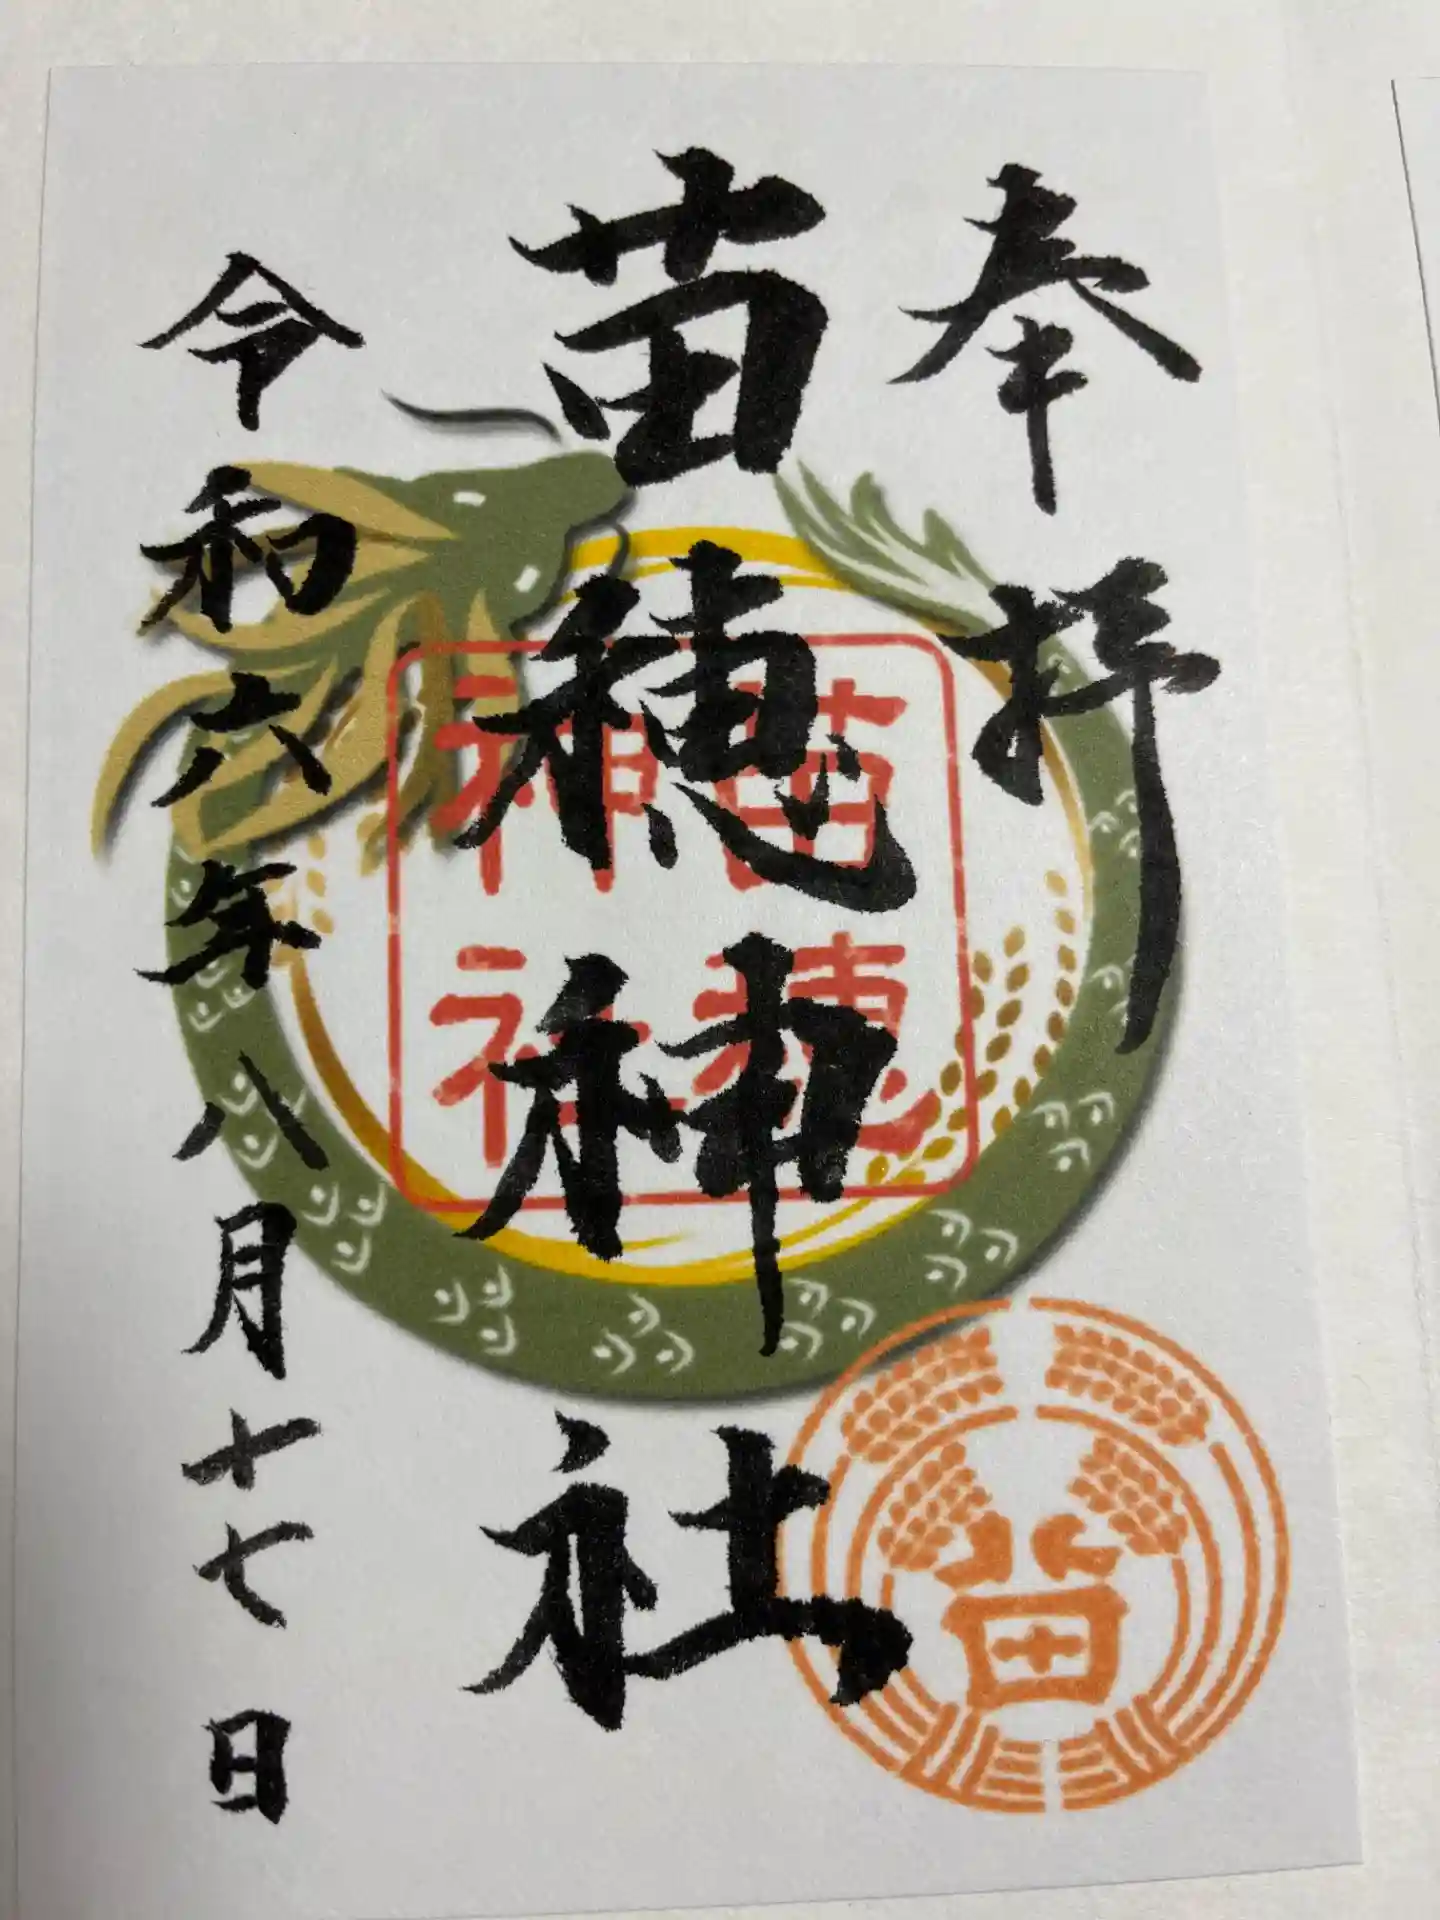 奉拝
苗穂神社
苗穂
神社
苗
令和六年八月十七日